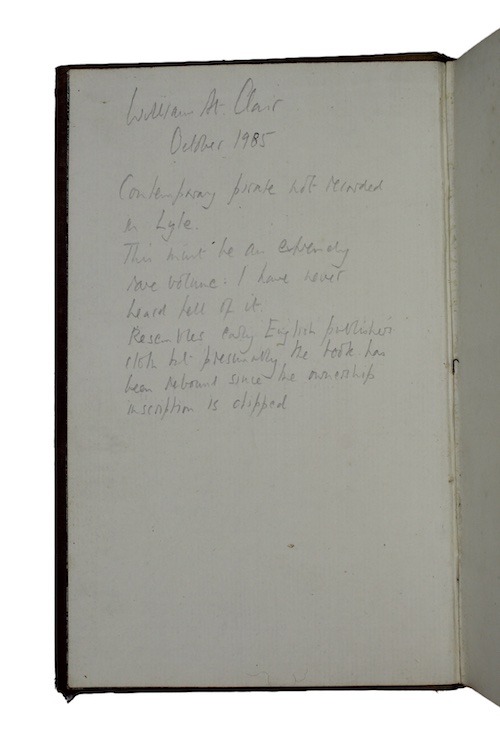 William St. Clair
October 1985
Contemporary pirate not recorded
in Lyle.
This must be an extremely
rare volume. I have never
heard tell of it
Resembles early English publisher's
cloth but presumably the book has
been rebound since the ownership
inscription is clipped